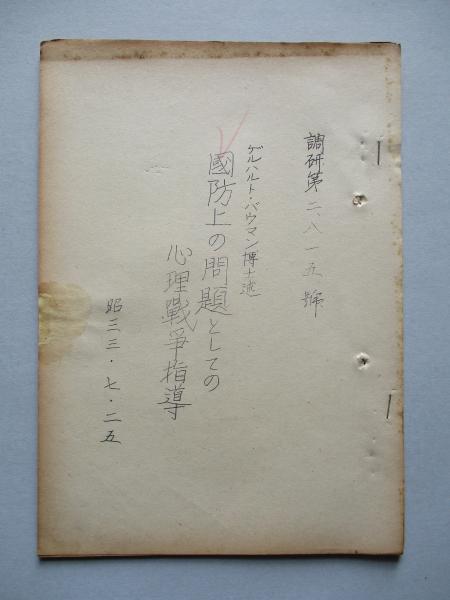 調研第二、八一五號
ゲルハルト・バウマン博士述
國防上の問題としての
心理戰爭指導
昭三三・七・二五